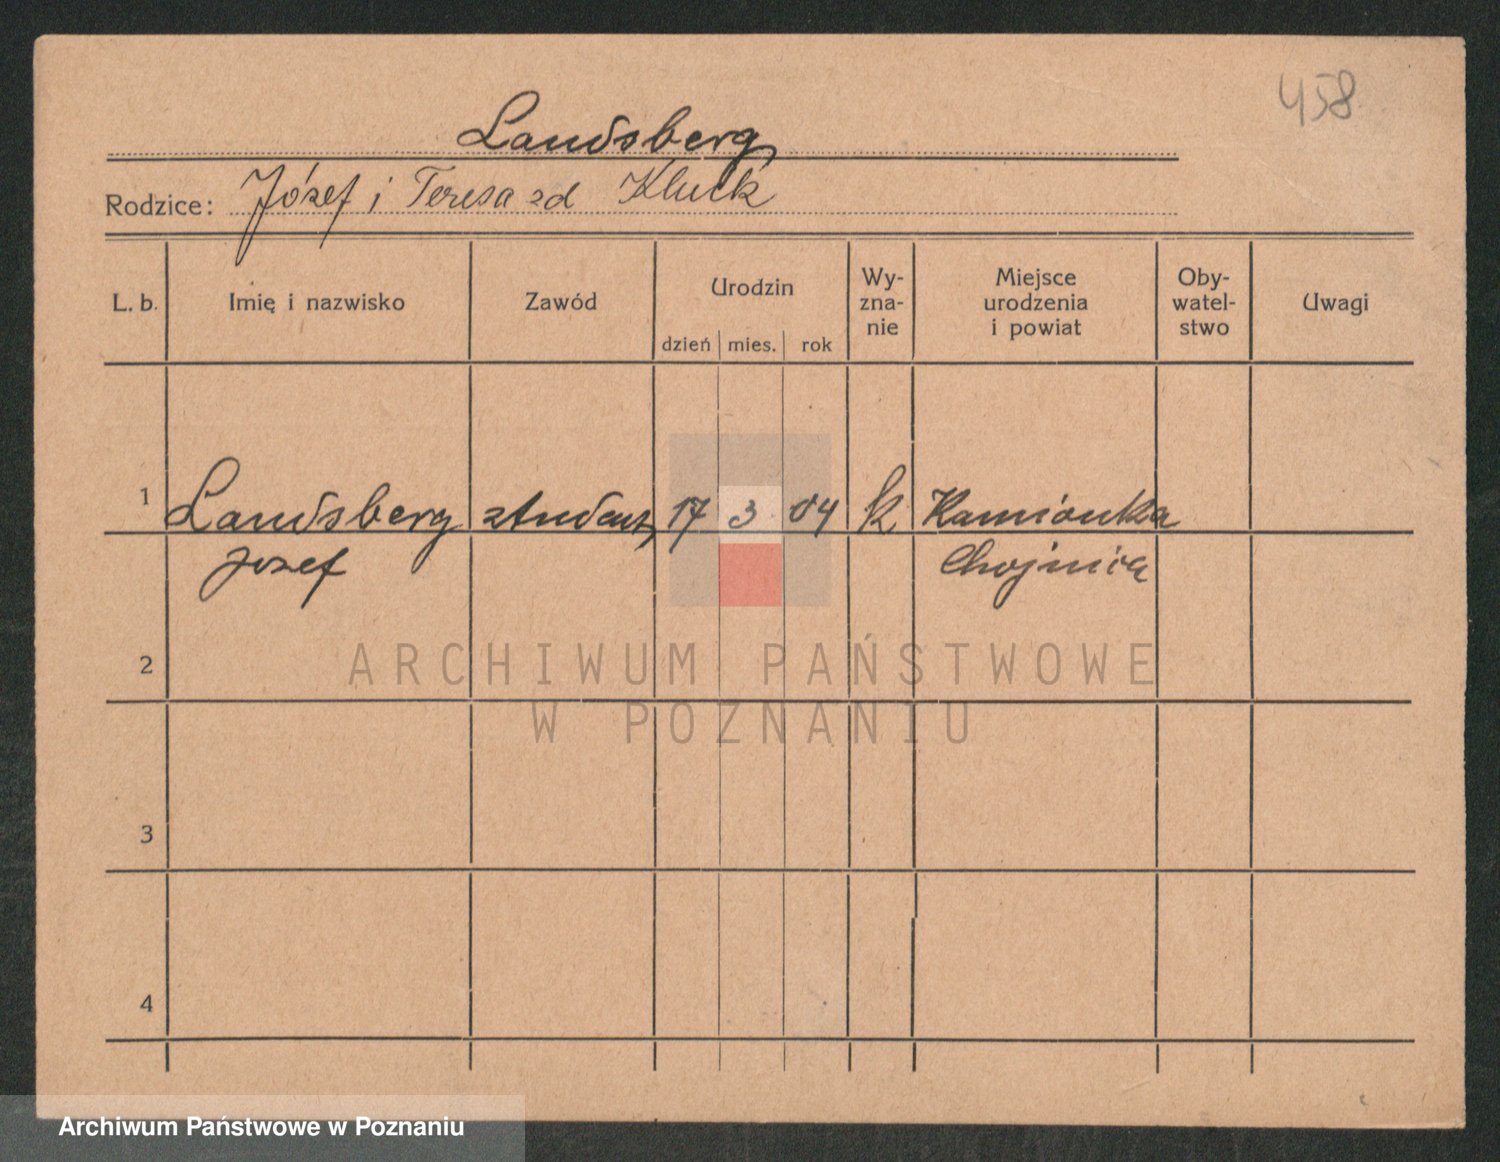 458
Landsberg
Rodzice: Józef i Teresa zd Kluck
L. b. Imię i nazwisko Zawód Urodzin dzień mies. rok Wy-zna-nie Miejsce urodzenia i powiat Oby-watel-stwo Uwagi
1 Landsberg student 17 3 04 k Kamionka
Jozef Chojnice
2
ARCHIWUM PAŃSTWOWE
W POZNANIU
3
4
Archiwum Państwowe w Poznaniu